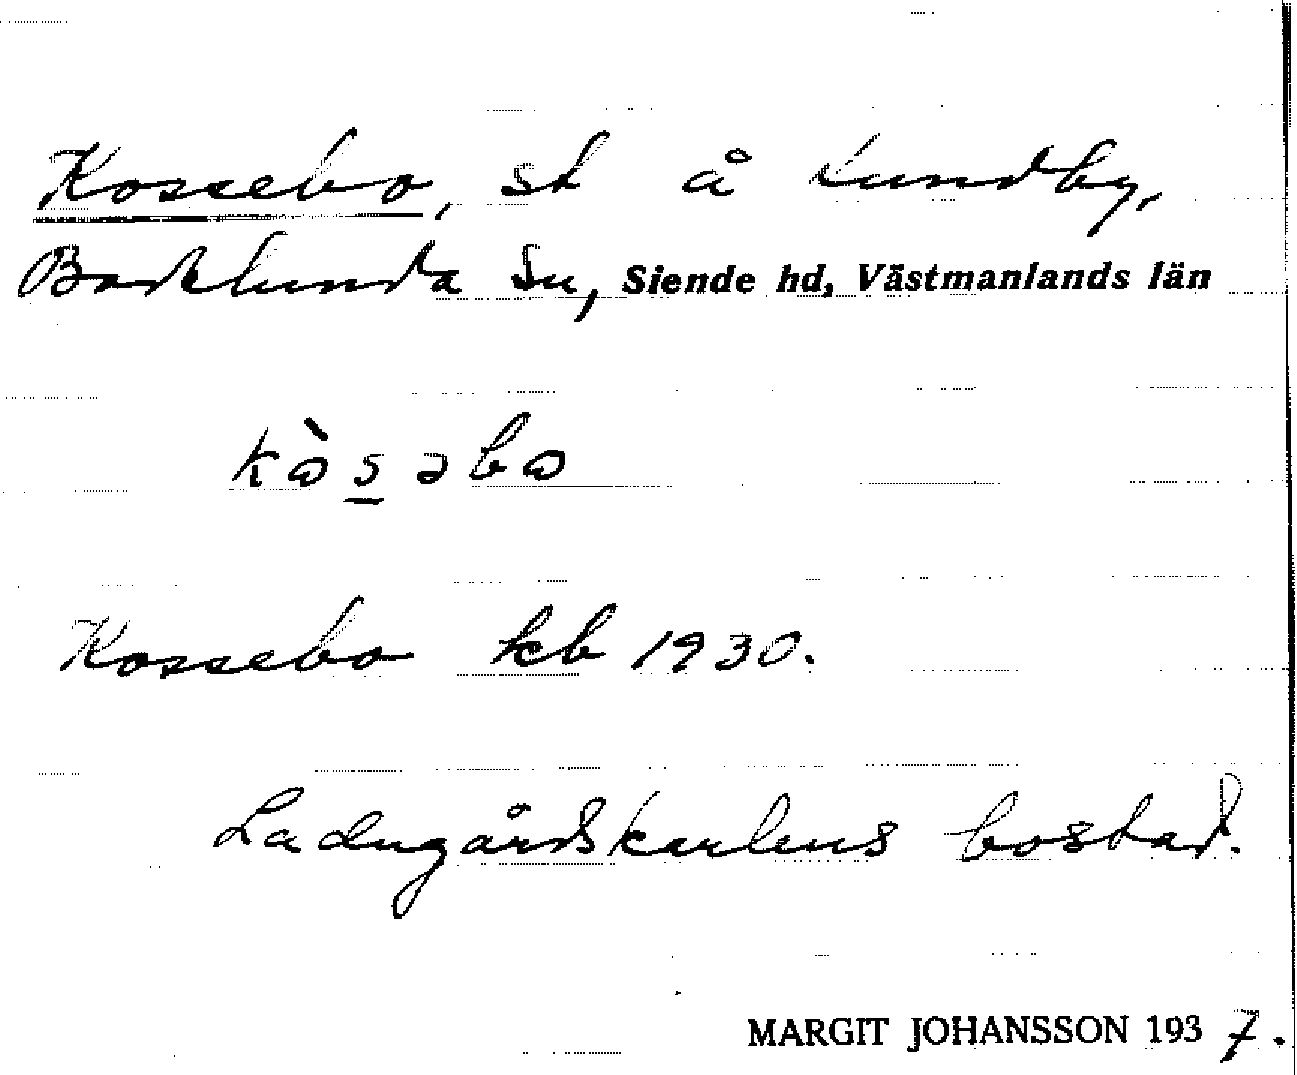 Kossebo, st å Lundby,
Badelunda sn, Siende hd, Västmanlands län
kòsəbo
Kossebo kb 1930.
Ladugårdskarlens bostad.
MARGIT JOHANSSON 1937.